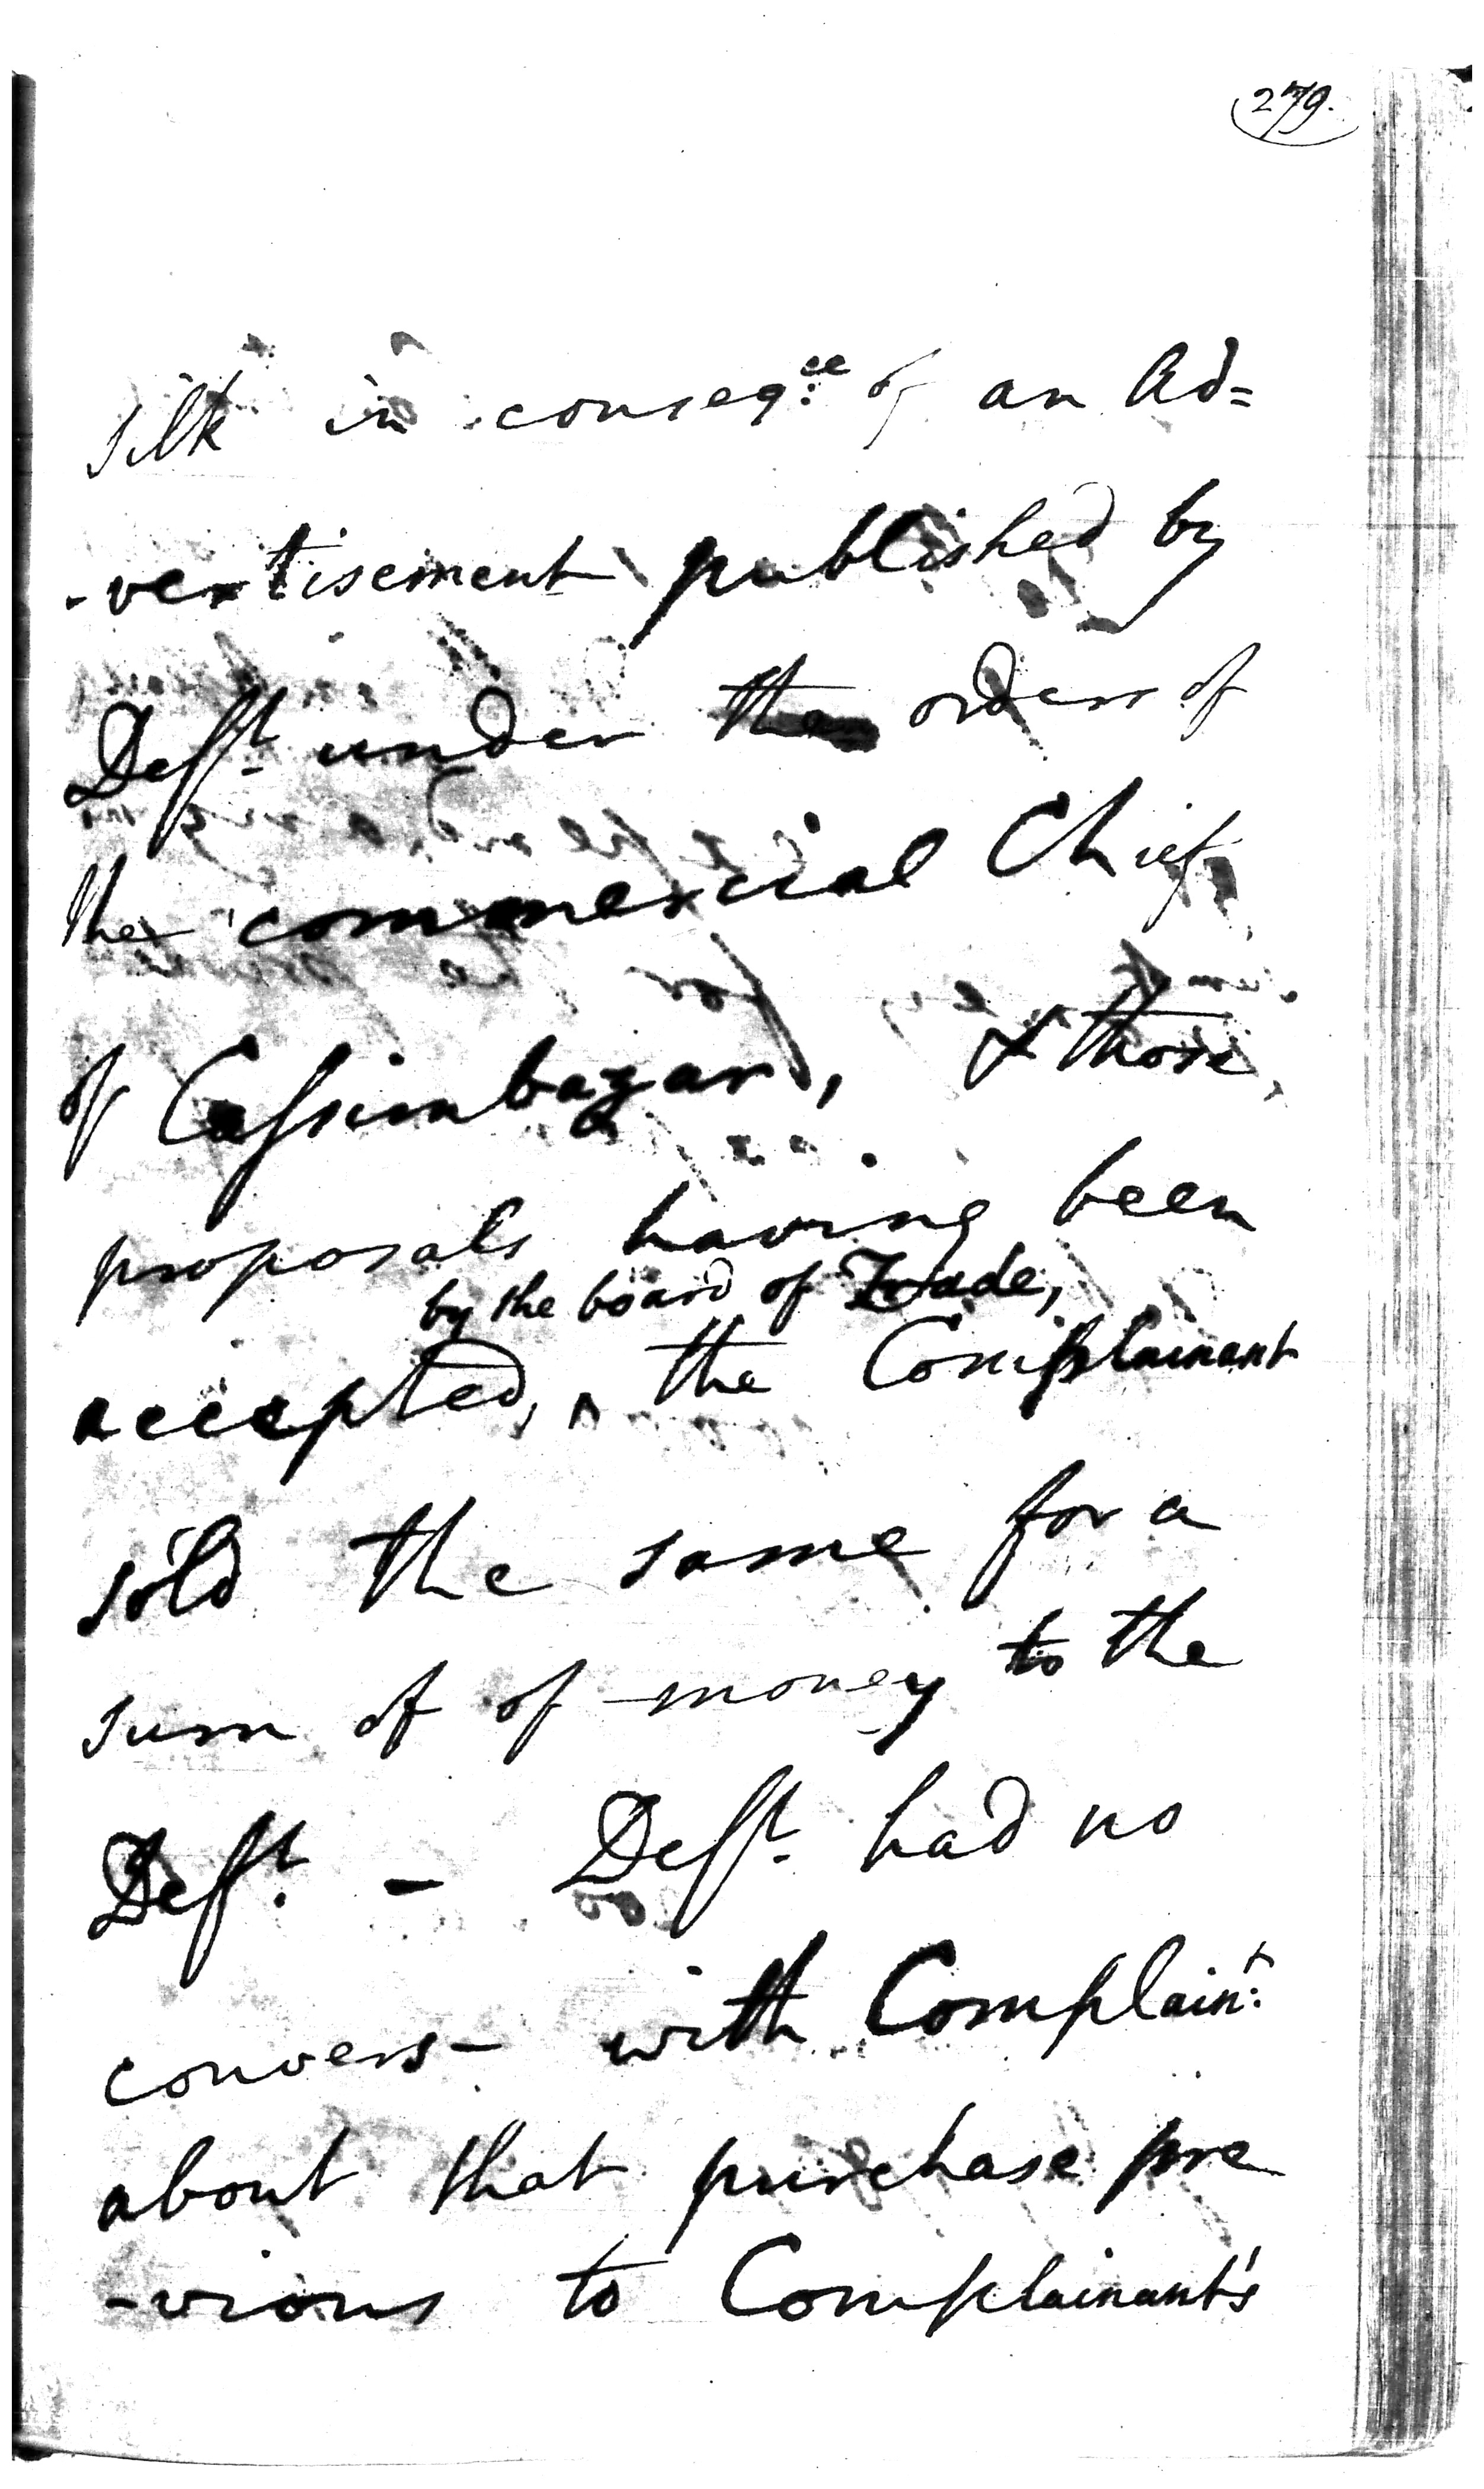 279.
silk in conseq:ce of an Ad=
-vertisement published by
Deft. under the orders of
the commercial Chief
of Cassimbazar, & those
proposals having been
by the board of Trade,
accepted, ^ the Complainant
sold the same for a
sum of of money to the
Deft. - Deft. had no
convers- with Complain:t
about that purchase pre
-vious to Complainant's